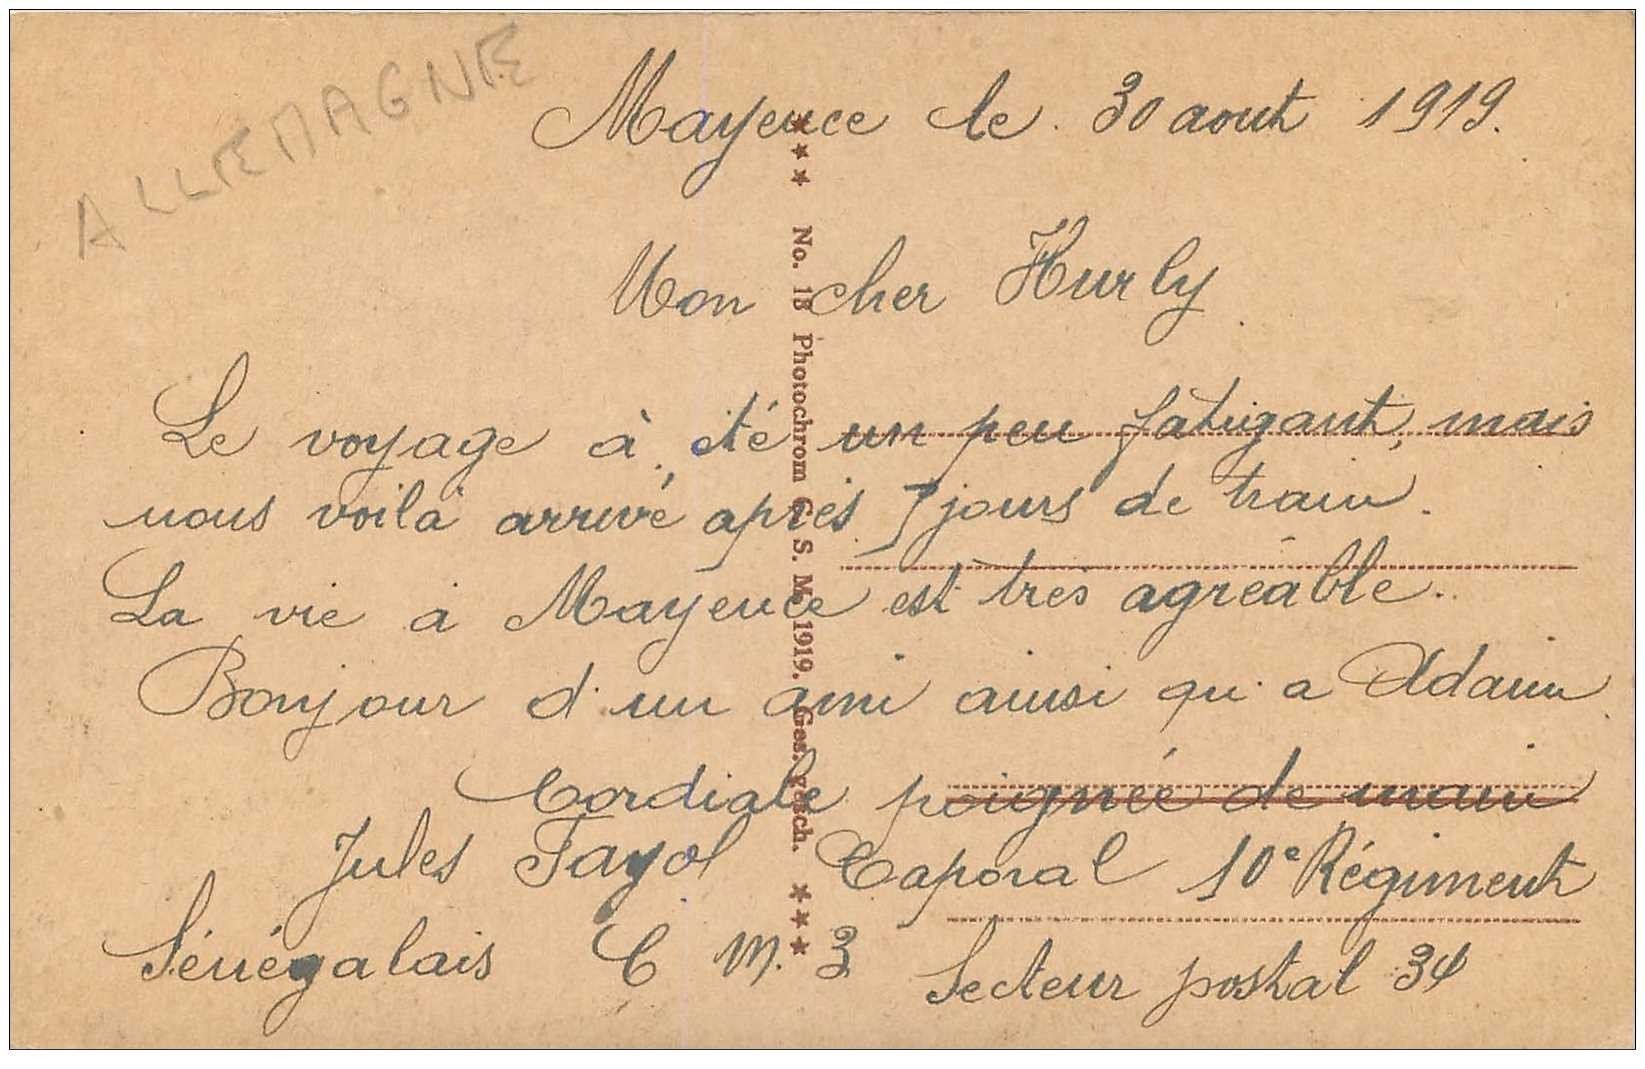 ALLEMAGNE
Mayence le 30 aout 1919.
Mon cher Hurly
Le voyage à été un peu fatigant, mais
nous voilà arrivé après 7 jours de train.
La vie à Mayence est très agréable.
Bonjour d'un ami ainsi qu'a Adam
Cordiale poignée de main
Jules Fayol Caporal 10e Régiment
Sénégalais C M. 3 Secteur postal 34
*** No. 13 Photochrom C. S. M. 1919. Ges. gesch. ***